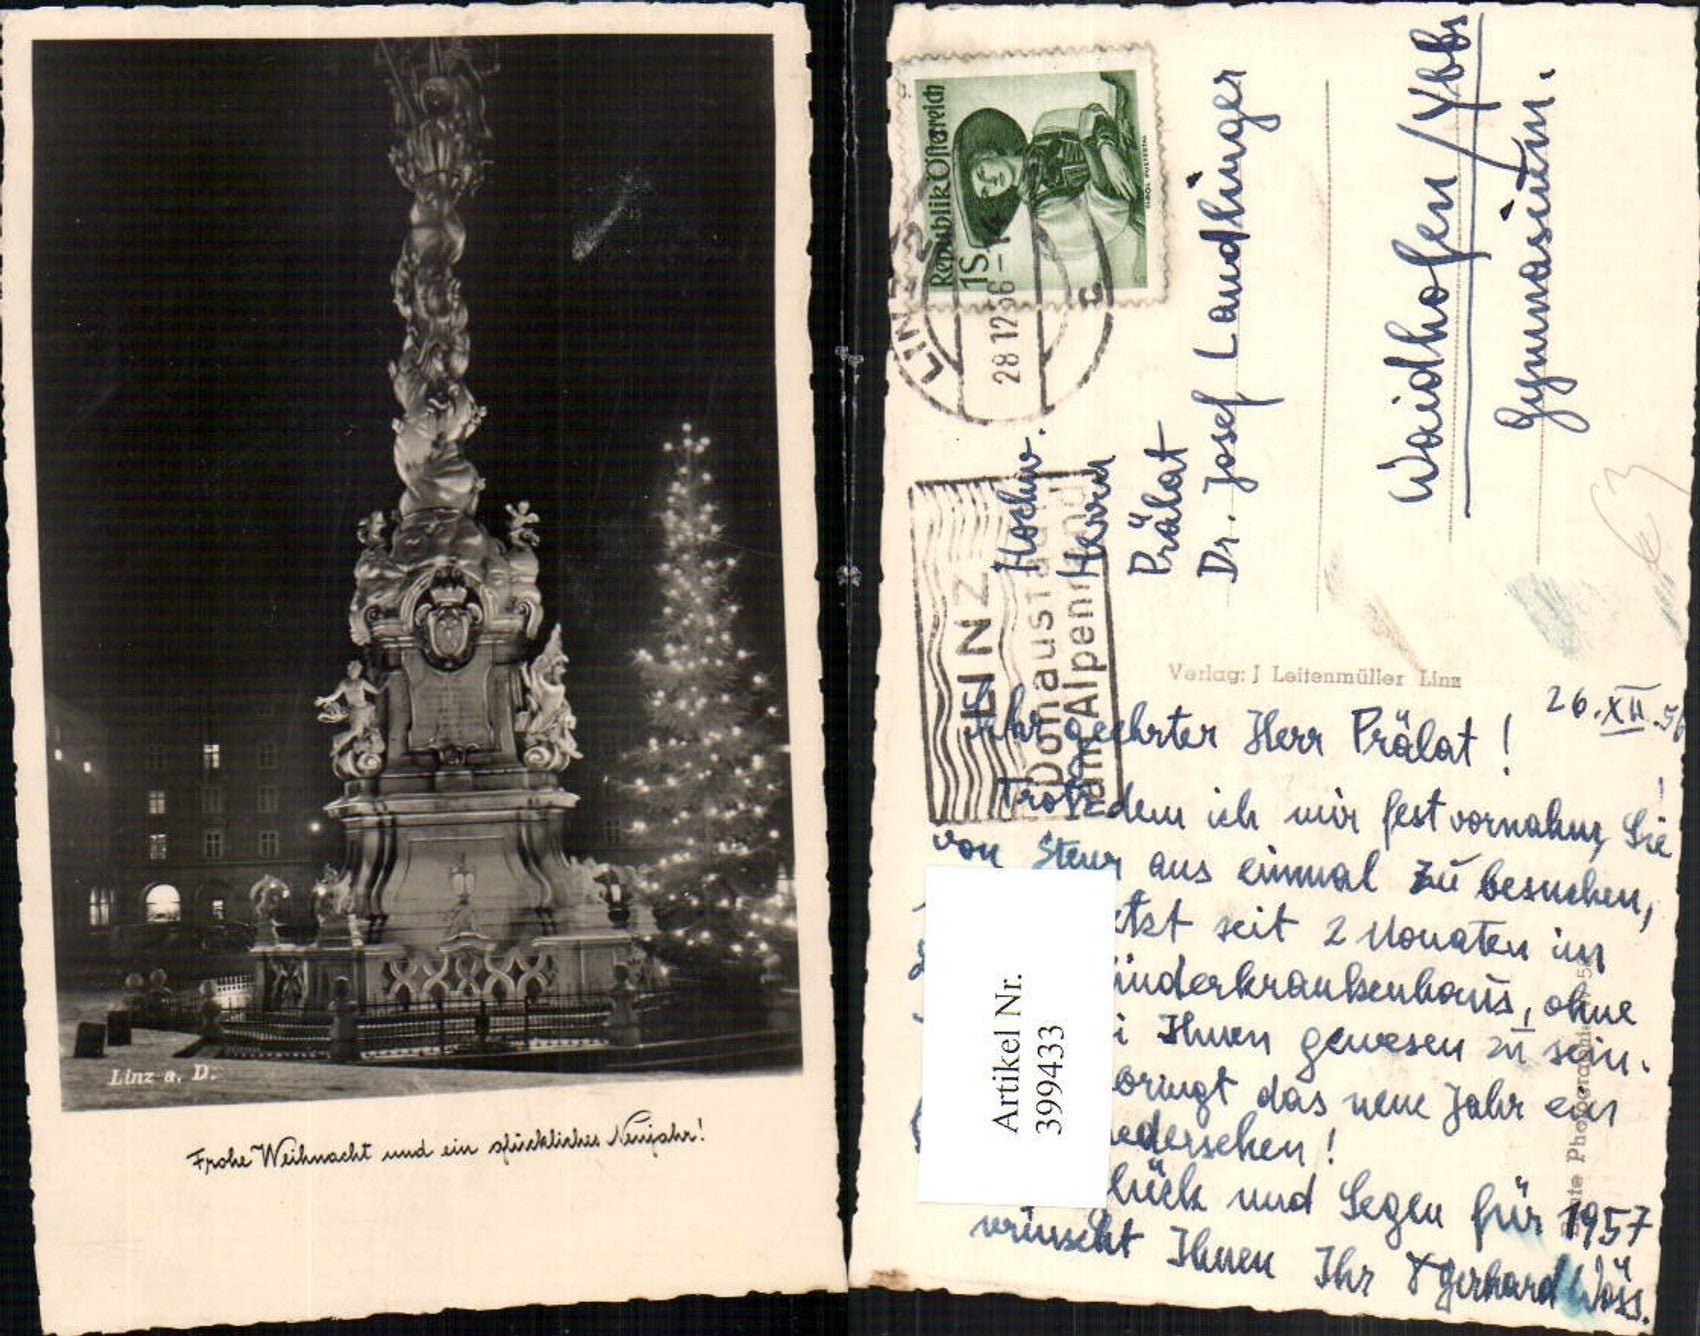 Linz a. D.
Frohe Weihnacht und ein glückliches Neujahr!
Republik Österreich
1S
TIROL PUSTERTAL
LINZ 2
28 12 56
LINZ
Donaustadt
Alpenrand
Hochw.
Herrn
Prälat
Dr. Josef Landlinger
Waidhofen / Ybbs
Gymnasium.
Verlag: J Leitenmüller Linz
26. XII. 56
Sehr geehrter Herr Prälat!
Trotzdem ich mir fest vornahm, Sie
von Steyr aus einmal zu besuchen,
seit 2 Monaten im
ohne
Ihnen gewesen zu sein.
das neue Jahr ein
und Segen für 1957
wünscht Ihnen Ihr Gerhard Wöss.
Echte Photographie
Artikel Nr.
399433